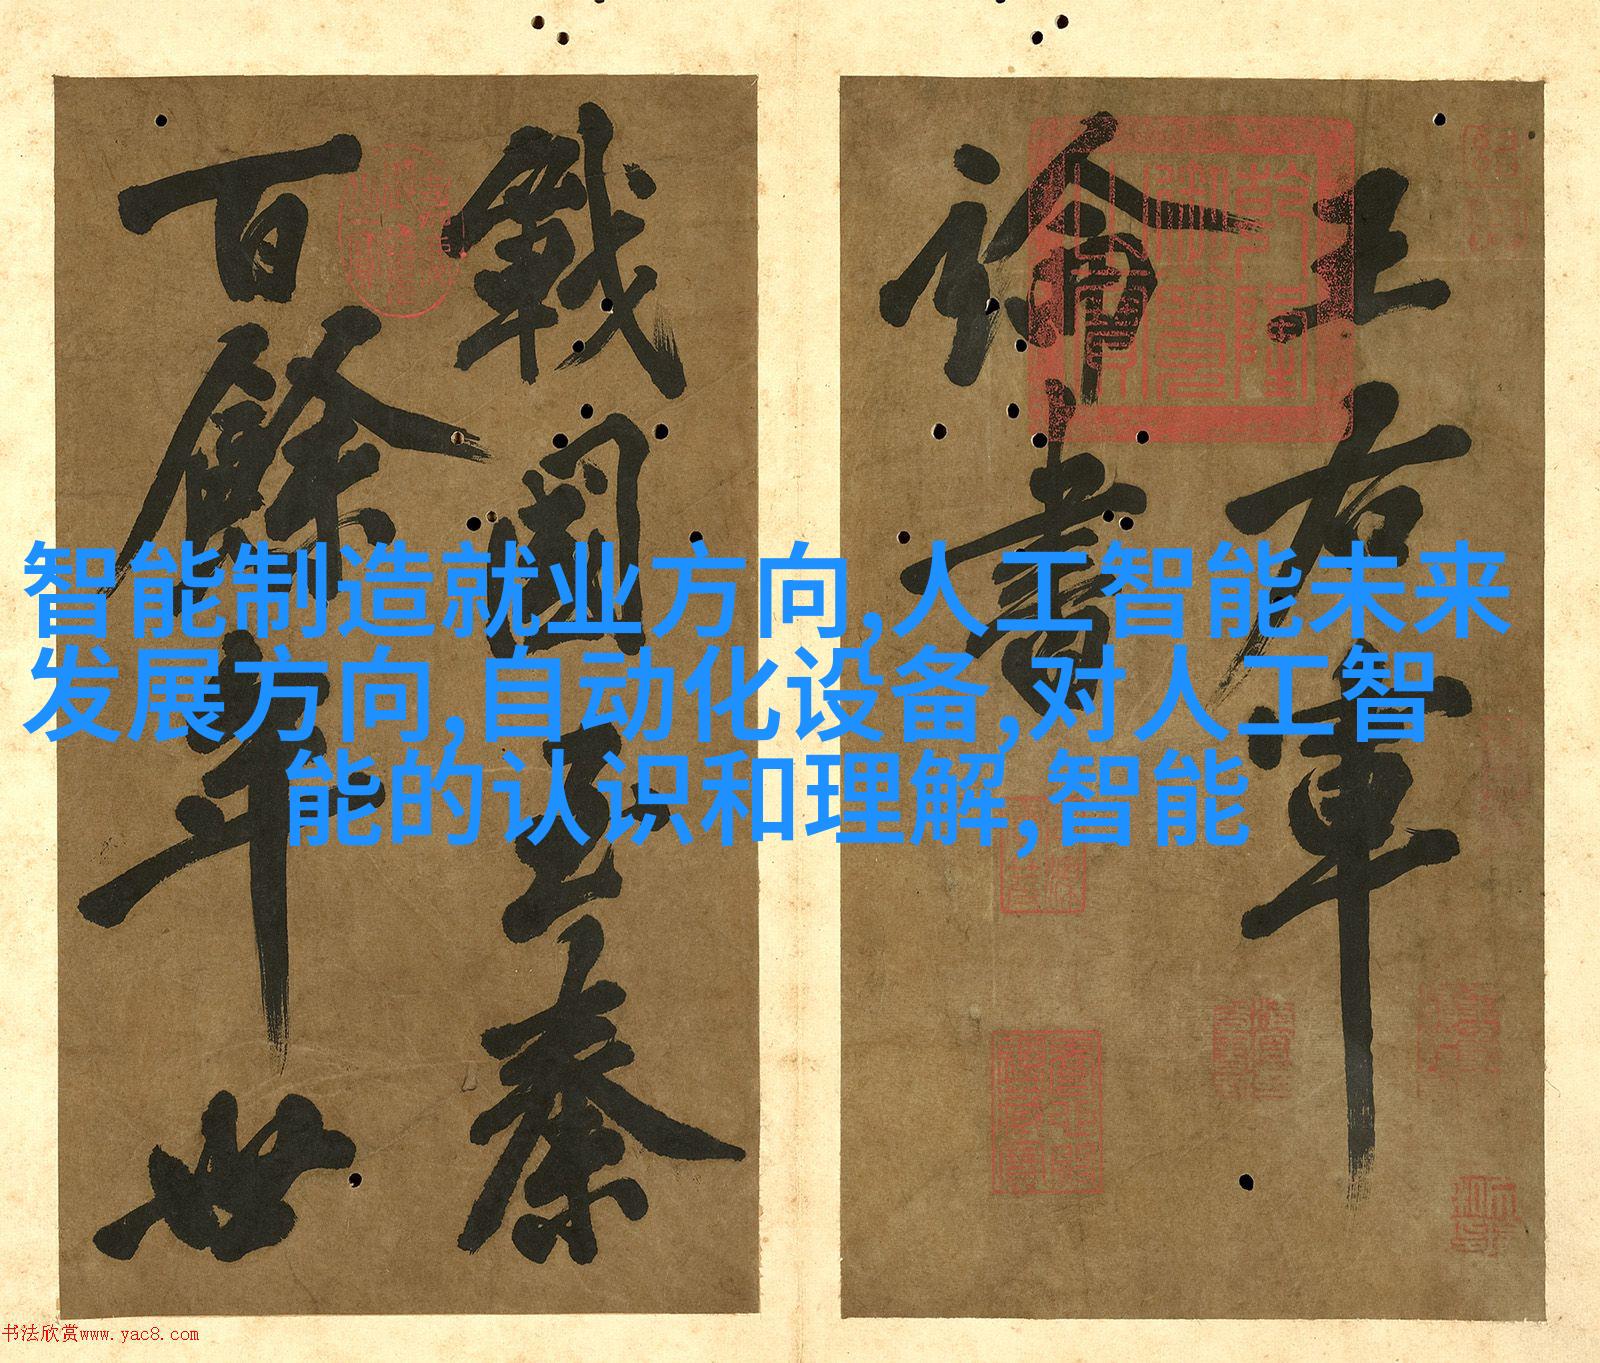 王右軍
論書
戰國至秦
百餘年世
智能制造就业方向,人工智能未来
发展方向,自动化设备,对人工智
能的认识和理解,智能
乾隆
御覽
之寶
书法欣赏www.yac8.com